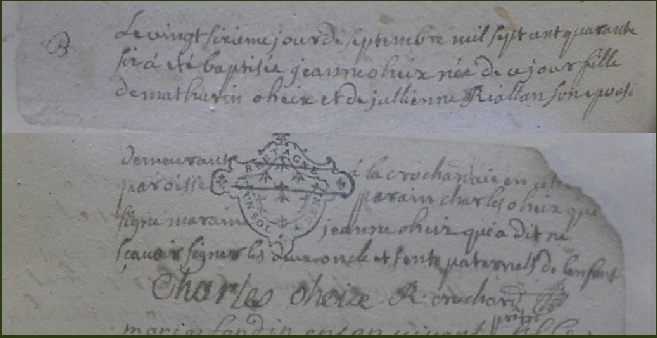 B
Le vingt sixieme jour de septembre mil sept cent quarante
six a été baptisée jeanne oheix née de ce jour fille
de mathurin oheix et de jullienne Riallan son epouse
demeurants à la crochardaie en cette
paroisse parain charles oheix qui
signe maraine jeanne oheix qui a dit ne
sçavoir signer les deux oncle et tente paternels de l'enfant
BRETAGNE
UN SOL
Charles oheix R crochard
prêtre